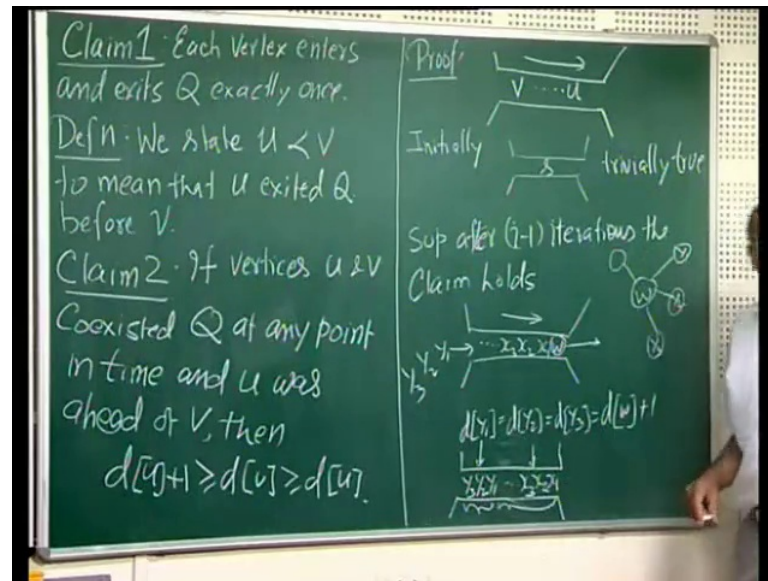 Claim 1: Each vertex enters
and exits Q exactly once.
Defn: We state u < v
to mean that u exited Q
before v.
Claim 2: If vertices u & v
Coexisted Q at any point
in time and u was
ahead of v, then
d[u]+1 ≥ d[v] ≥ d[u].
Proof:
v ..... u
Initially
s
trivially true
Sup after (i-1) iterations the
Claim holds
w
y
x
x
y3 y2 y1 → ... x3 x2 x1 w
d[y1]=d[y2]=d[y3]=d[w]+1
y3 y2 y1 ... x3 x2 x1